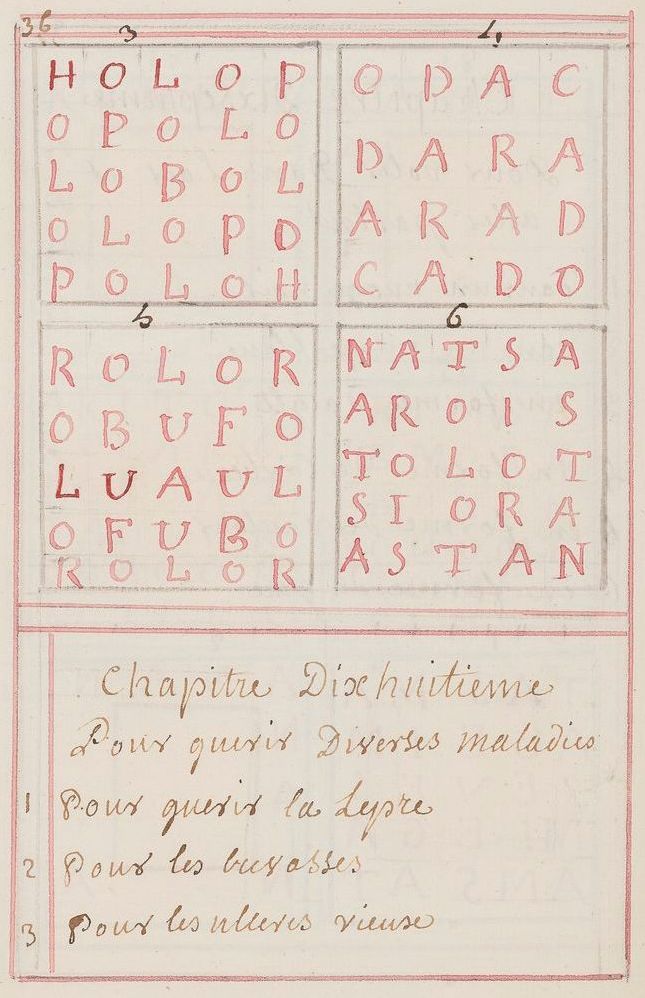 36
3
H O L O P
O P O L O
L O B O L
O L O P O
P O L O H
4
O D A C
D A R A
A R A D
C A D O
5
R O L O R
O B U F O
L U A U L
O F U B O
R O L O R
6
N A T S A
A R O I S
T O L O T
S I O R A
A S T A N
Chapitre Dixhuitieme
Pour guerir Diverses maladies
1 Pour guerir la Lepre
2 Pour les
3 Pour les ulleres vieuse